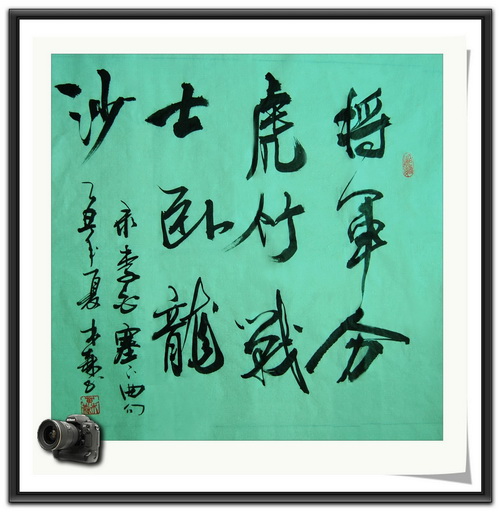 將軍分
虎竹戰
士卧龍
沙
录李白塞下曲句
乙丑年夏